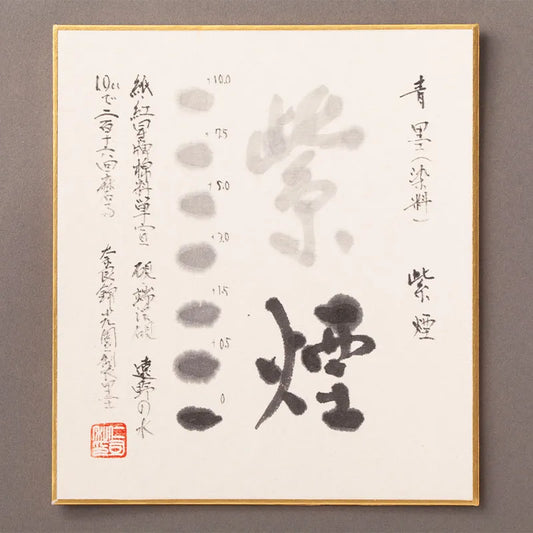 青墨(染料) 紫煙
紫煙
+10.0
7.5
+5.0
+3.0
+1.5
+0.5
0
紙・紅星牌棉料単宣 硯 端渓硯 遠野の水
10ccで二百十六回磨る 奈良 錦光園製墨